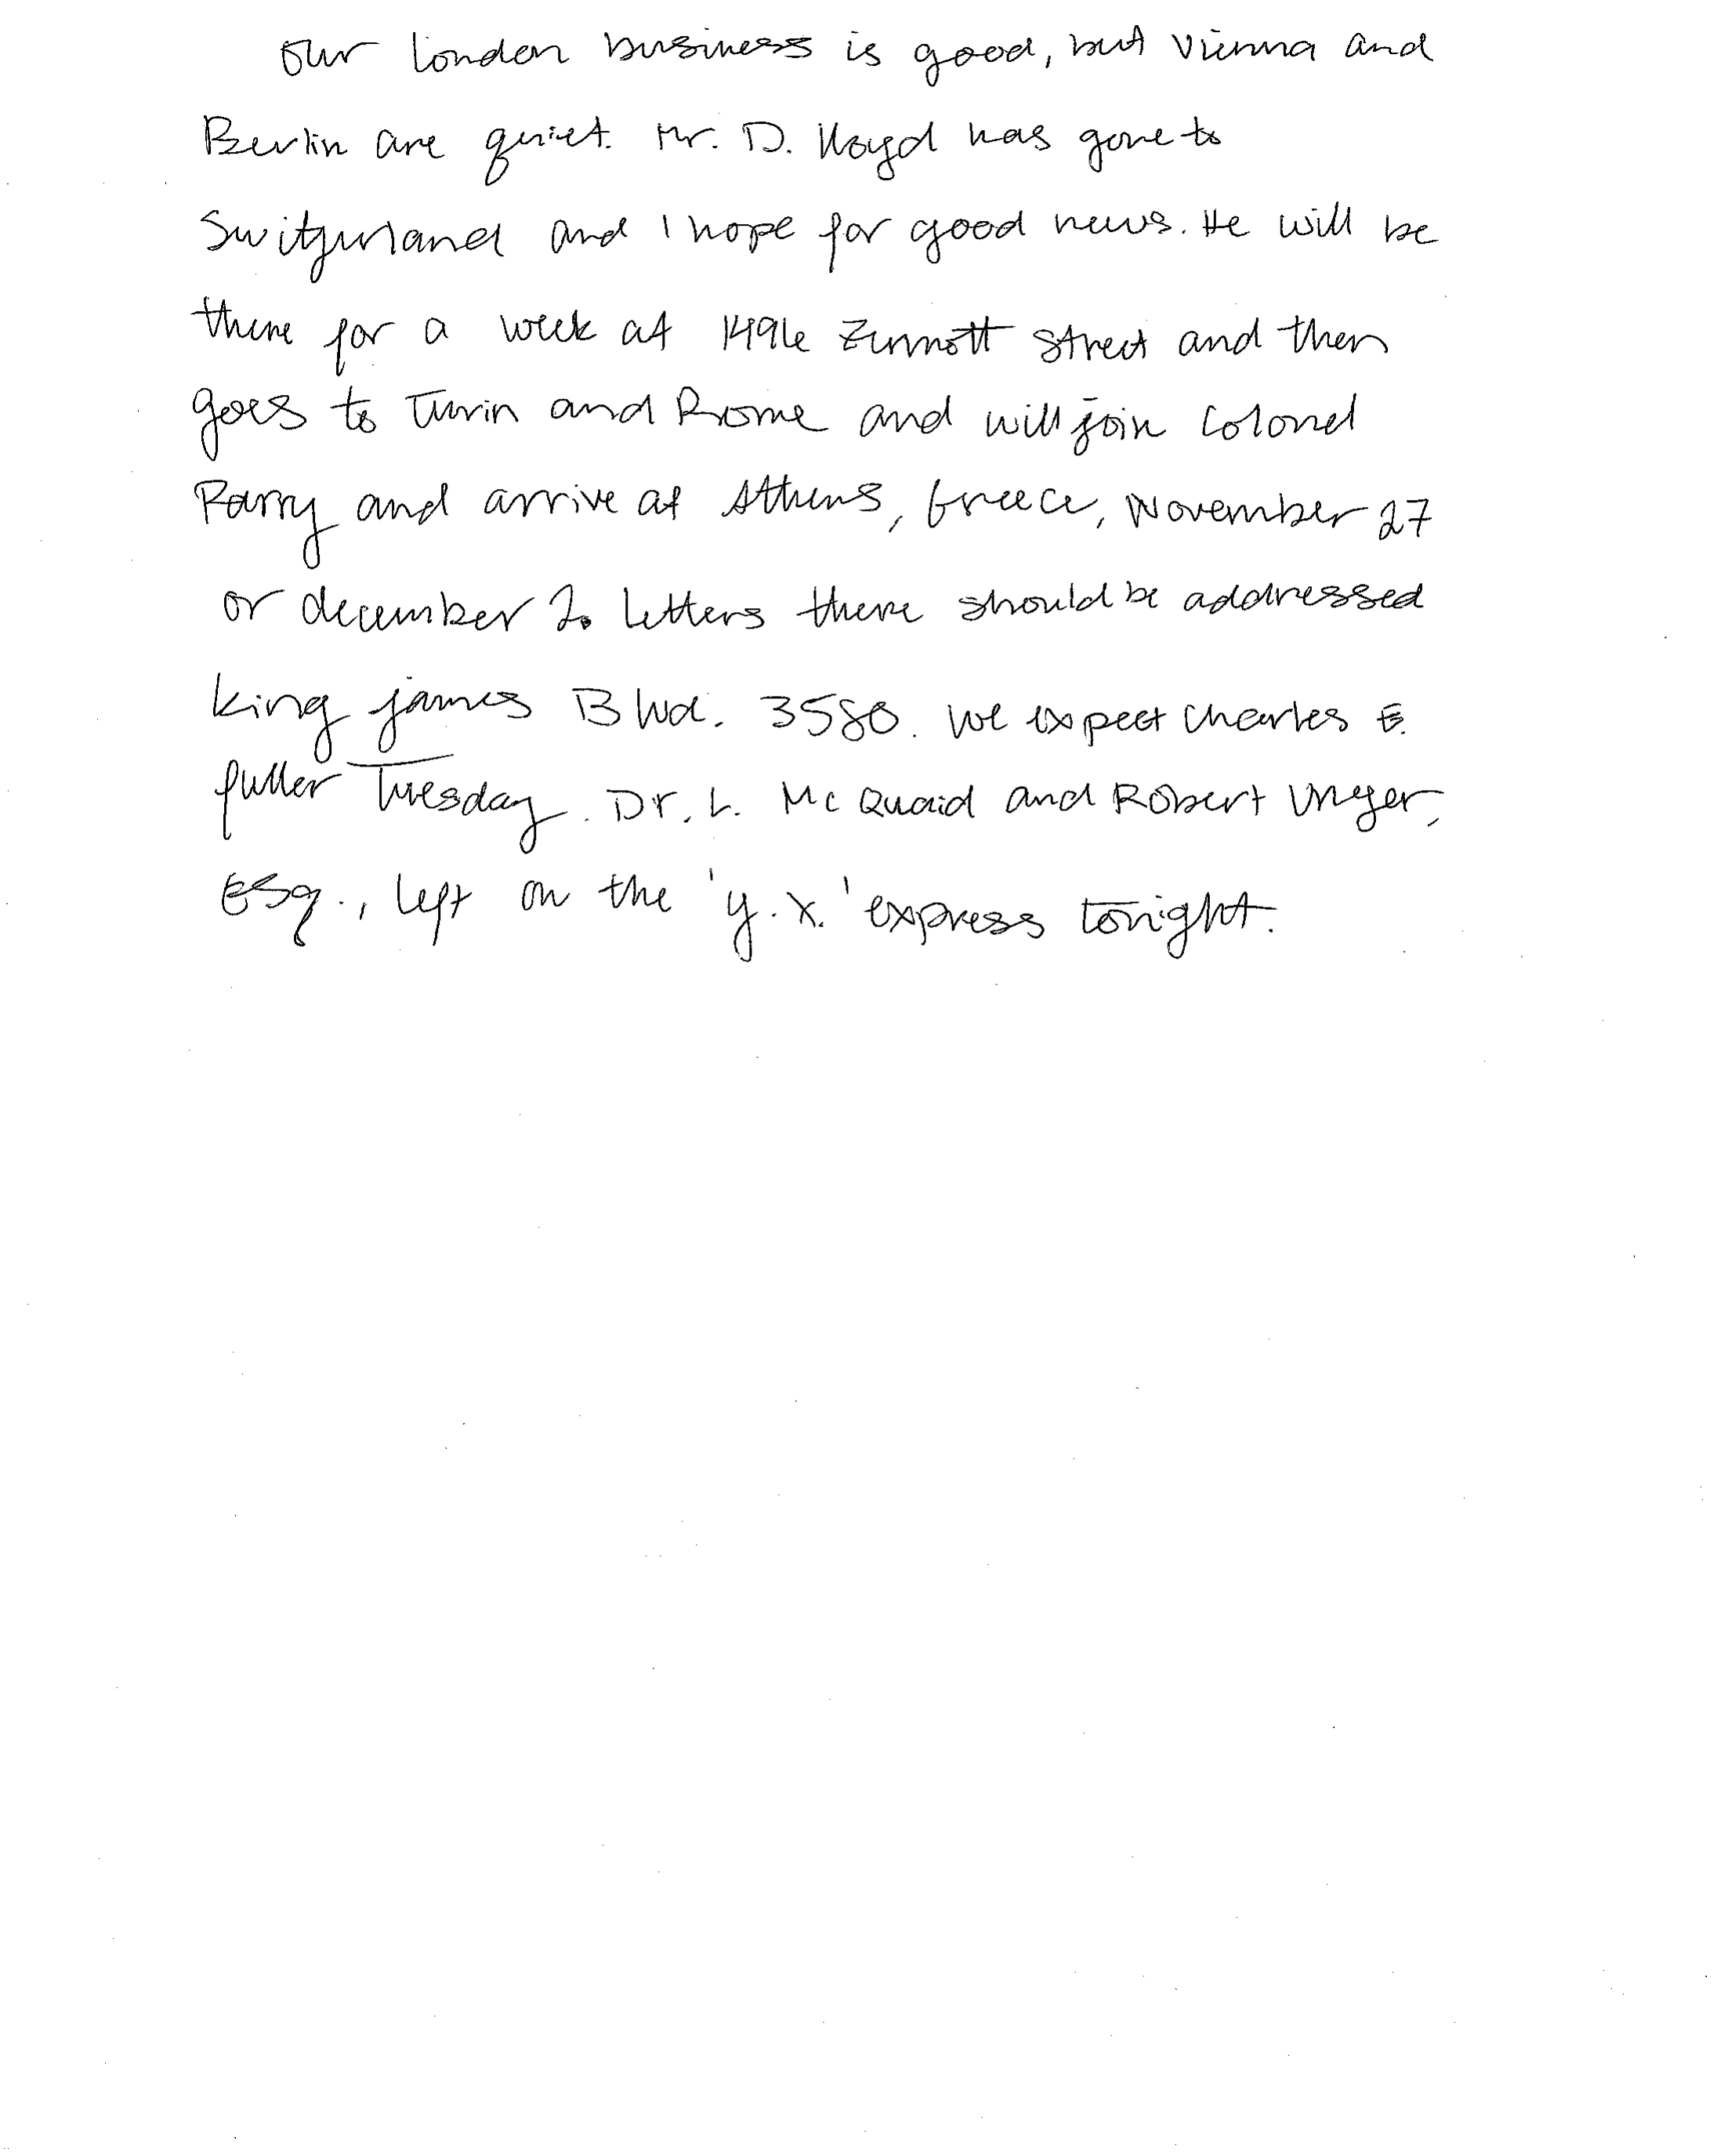 Our London business is good, but Vienna and
Berlin are quiet. Mr. D. Lloyd has gone to
Switzerland and I hope for good news. He will be
there for a week at 1496 Zermott Street and then
goes to Turin and Rome and will join Colonel
Parry and arrive at Athens, Greece, November 27
or december 2. Letters there should be addressed
King james Blvd. 3580. We expect Charles E.
fuller Tuesday. Dr. L. McQuaid and Robert Unger,
Esq., left on the 'y.x.' express tonight.